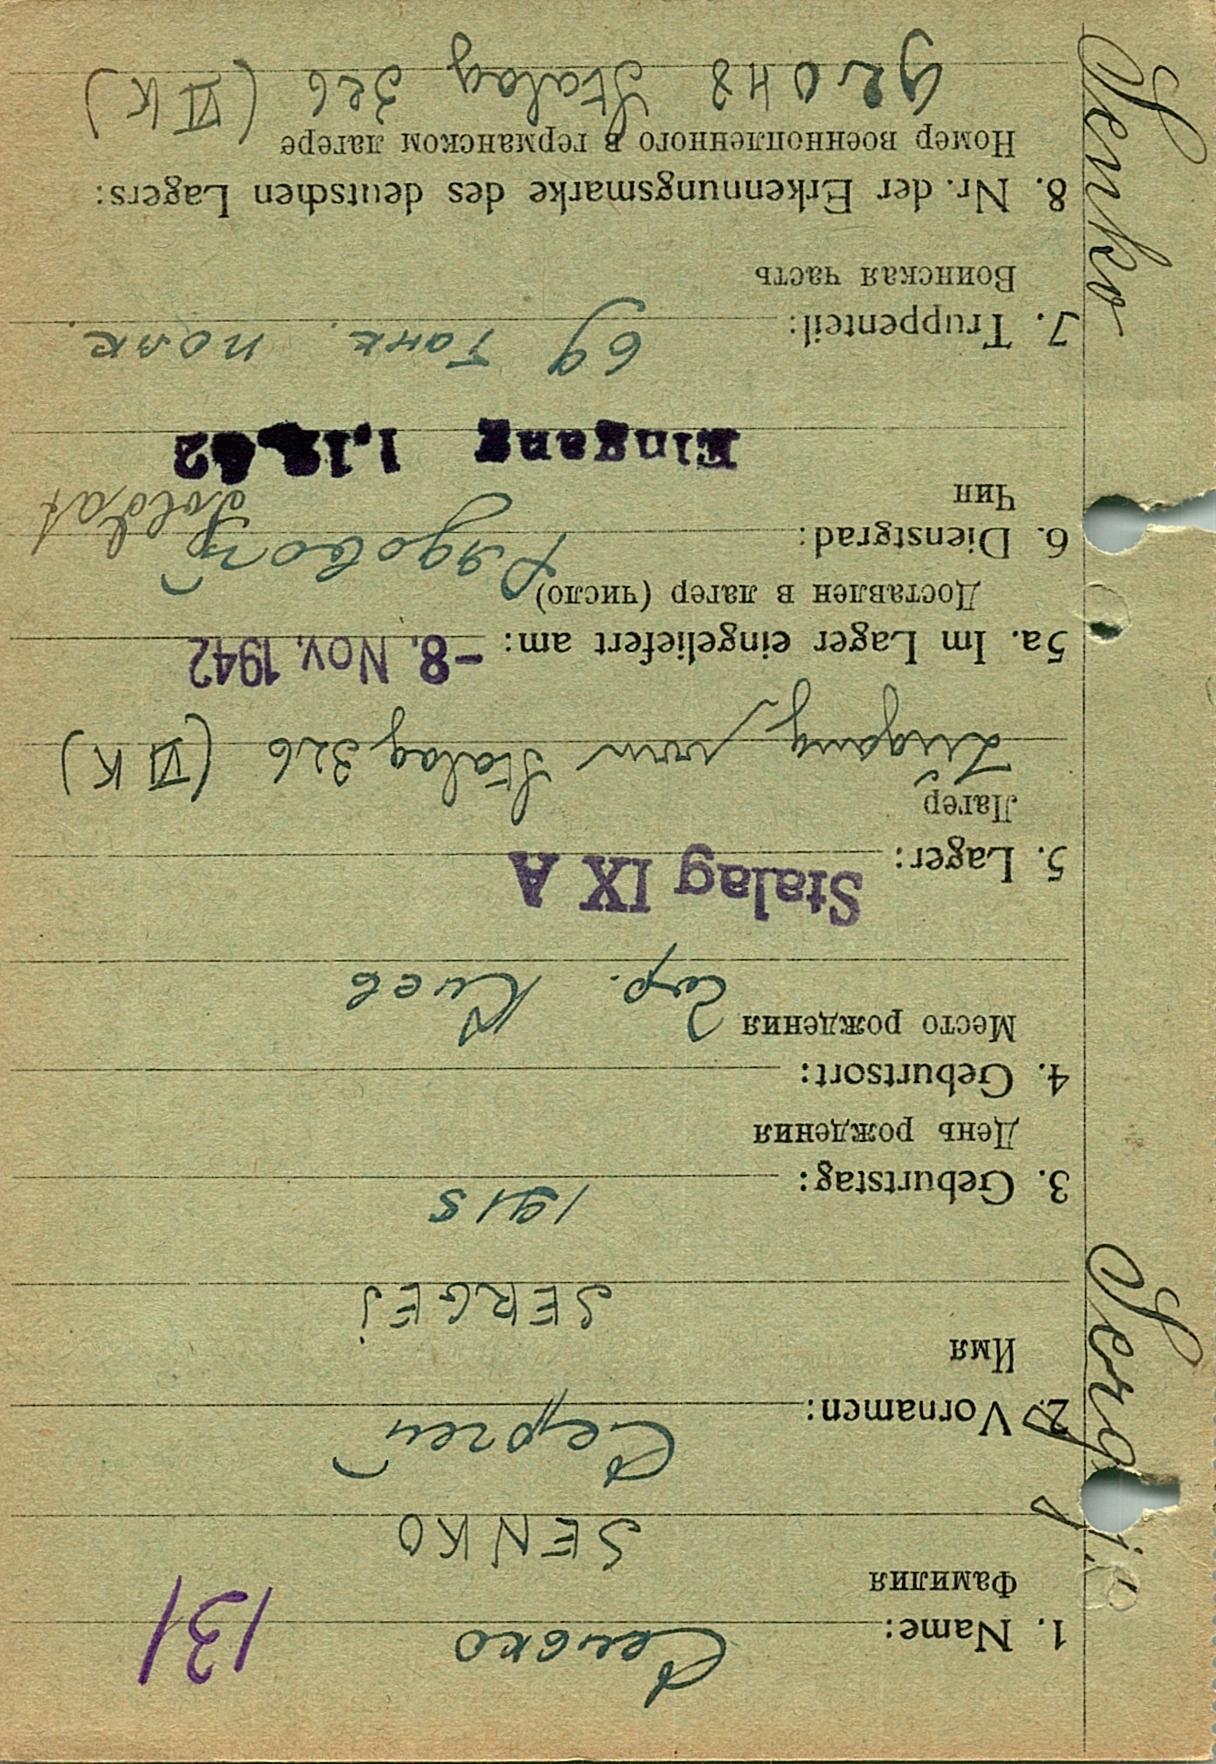 131
1. Name: Сенко
Фамилия
SENKO
2. Vornamen: Сергей
Имя
SERGEJ
3. Geburtstag: 1915
День рождения
4. Geburtsort:
Место рождения гор. Киев
5. Lager: Stalag IX A
Лагер
Zugang vom Stalag 326 (VI K)
5a. Im Lager eingeliefert am: -8. Nov. 1942
Доставлен в лагер (число)
6. Dienstgrad: Рядовой Soldat
Чин
Eingang
7. Truppenteil: 69 танк. полк.
Воинская часть
8. Nr. der Erkennungsmarke des deutschen Lagers:
Номер военнопленного в германском лагере
92048 Stalag 326 (VI K)
Senko
Sergej